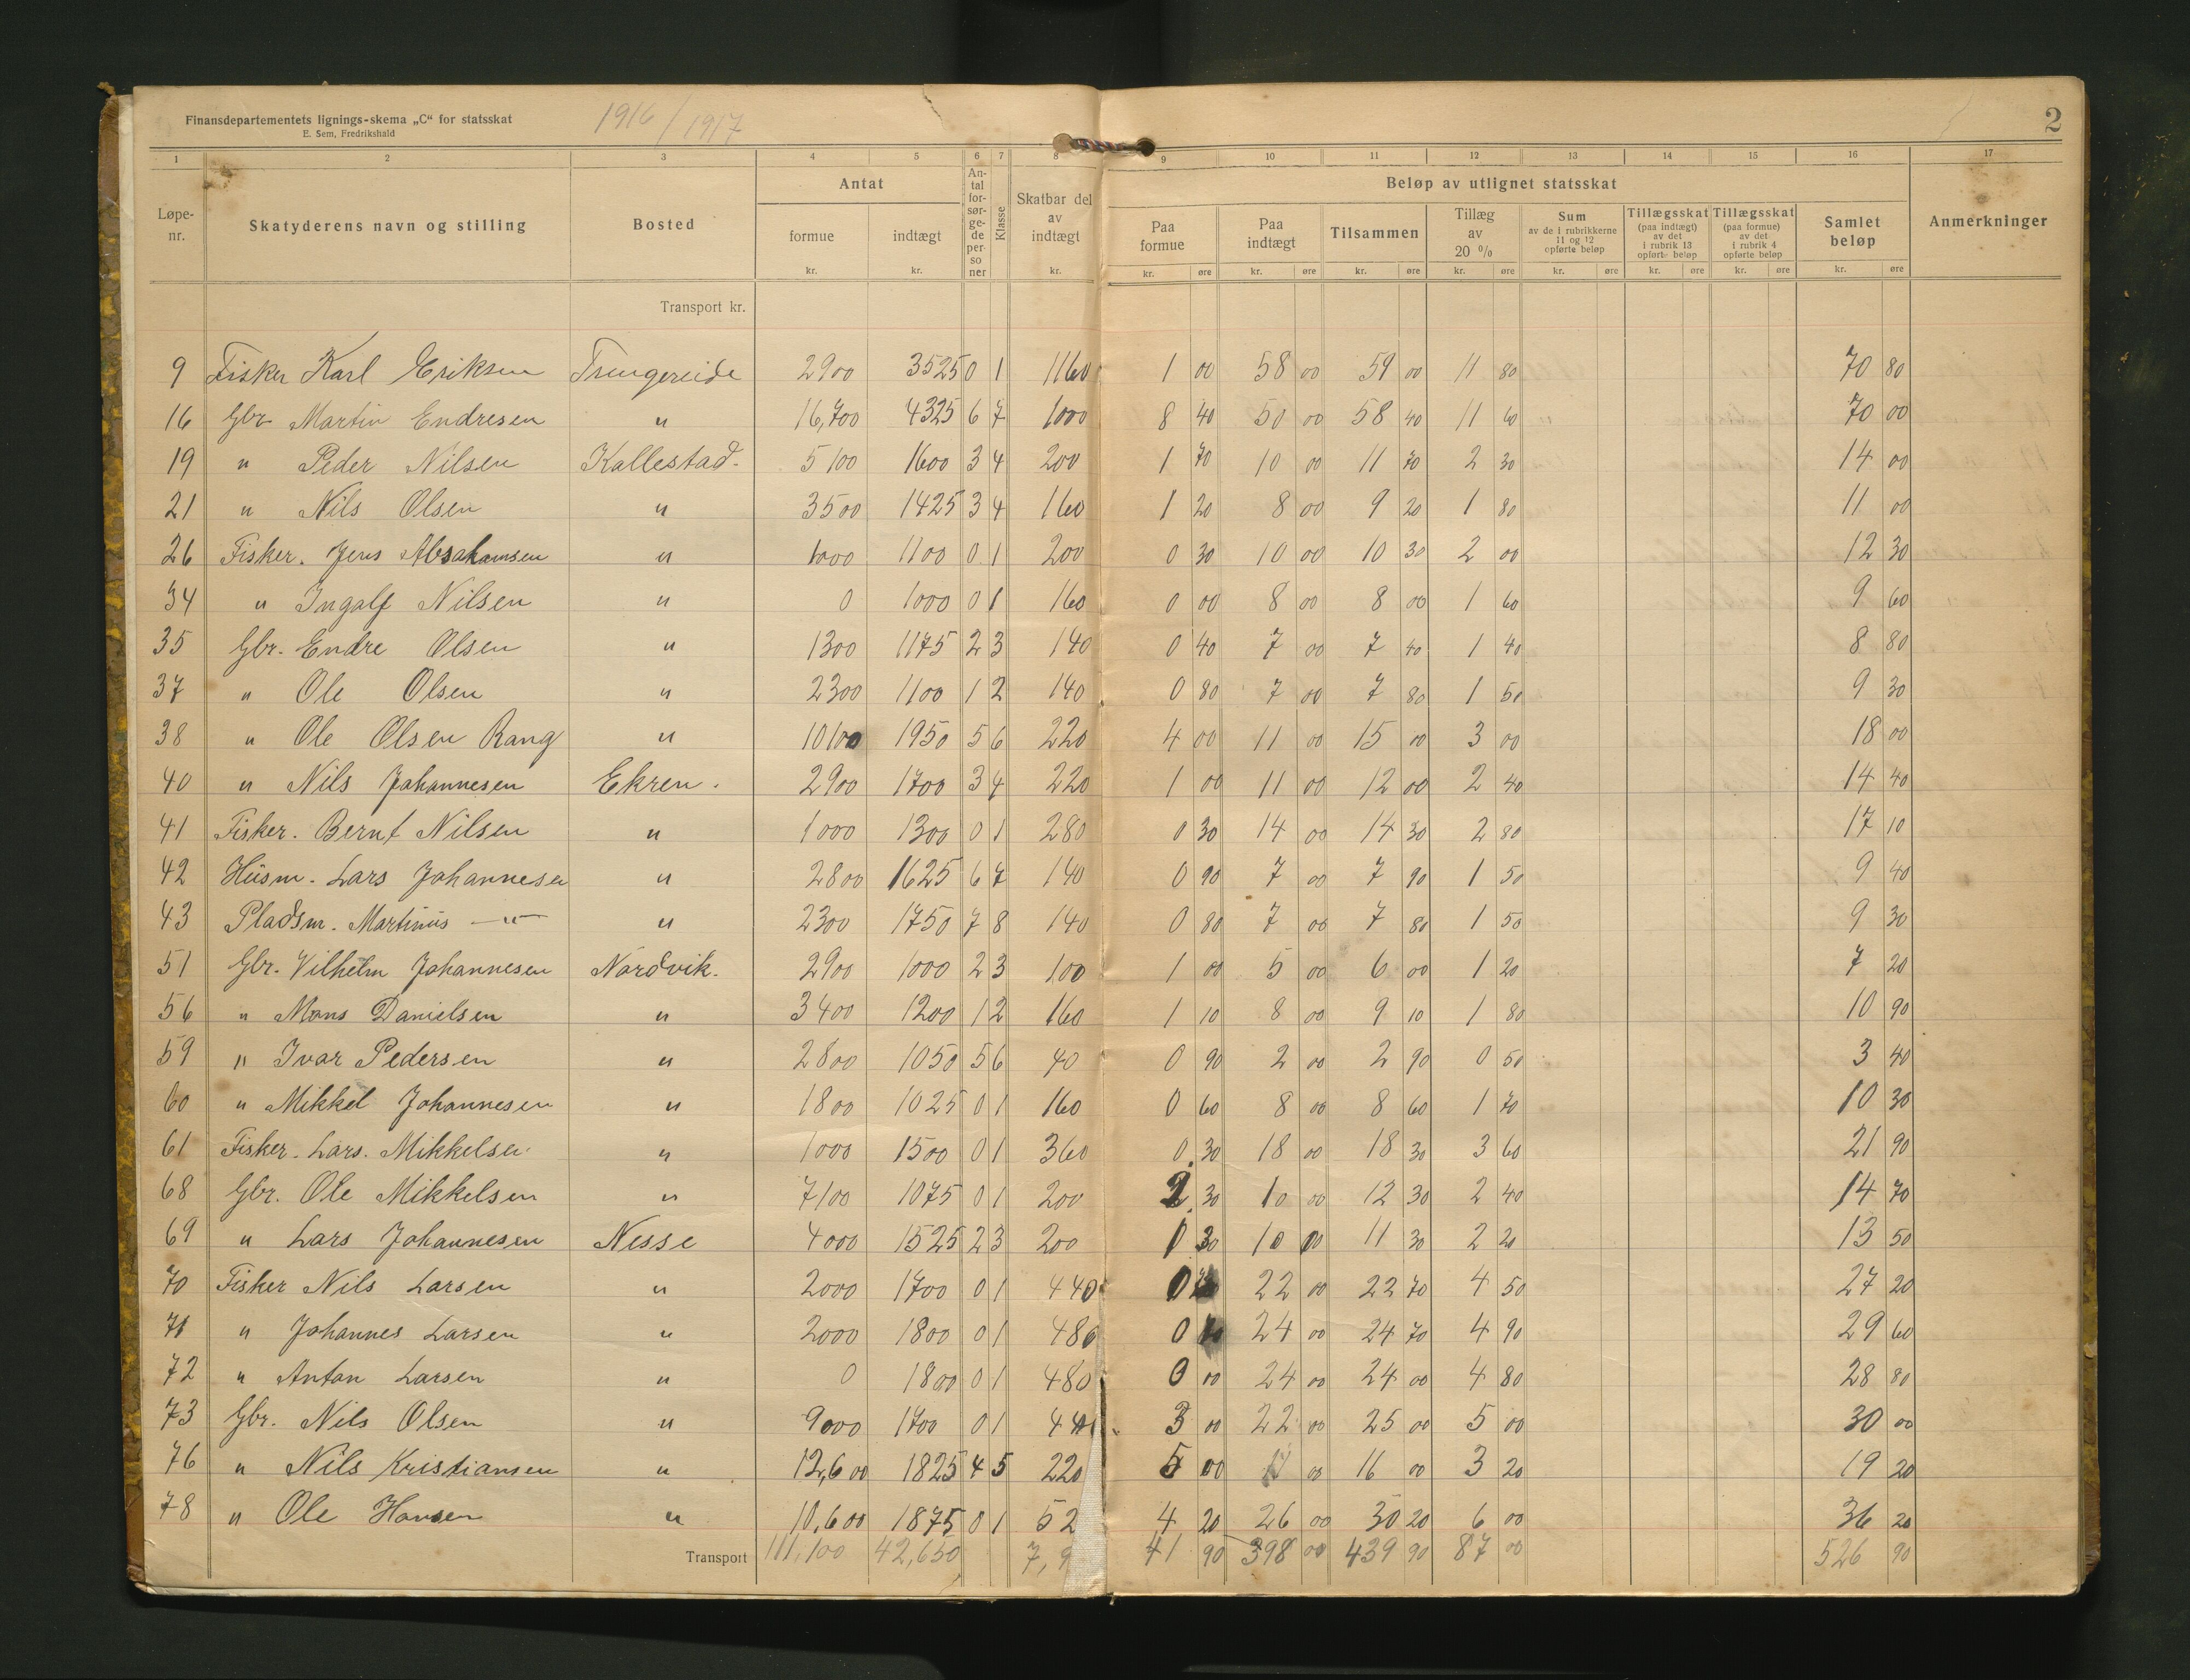 Finansdepartementets lignings-skema „C“ for statsskat
E. Sem, Fredrikshald
1916/1917
2
1 2 3 4 5 6 7 8 9 10 11 12 13 14 15 16 17
Løpe-nr. Skatyderens navn og stilling Bosted Antat formue kr. indtægt kr. Antal forsørgede personer Klasse Skatbar del av indtægt kr. Beløp av utlignet statsskat Paa formue kr. øre Paa indtægt kr. øre Tilsammen kr. øre Tillæg av 20 % kr. øre Sum av de i rubrikkerne 11 og 12 opførte beløp kr. øre Tillægsskat (paa indtægt) av det i rubrik 13 opførte beløp kr. øre Tillægsskat (paa formue) av det i rubrik 4 opførte beløp kr. øre Samlet beløp kr. øre Anmerkninger
Transport kr.
9 Fisker Karl Eriksen 2900 3525 0 1 1160 1 00 58 00 59 00 11 80 70 80
16 Gbr Martin Endresen " 16,700 4325 6 7 1000 8 40 50 00 58 40 11 60 70 00
19 " Peder Nilsen Kallestad. 5100 1600 3 4 200 1 70 10 00 11 70 2 30 14 00
21 " Nils Olsen " 3500 1425 3 4 160 1 20 8 00 9 20 1 80 11 00
26 Fisker. Jens Abrahamsen " 1000 1100 0 1 200 0 30 10 00 10 30 2 00 12 30
34 " Ingolf Nilsen " 0 1000 0 1 160 0 00 8 00 8 00 1 60 9 60
35 Gbr. Endre Olsen " 1300 1175 2 3 140 0 40 7 00 7 40 1 40 8 80
37 " Ole Olsen " 2300 1100 1 2 140 0 80 7 00 7 80 1 50 9 30
38 " Ole Olsen Rang " 10100 1950 5 6 220 4 00 11 00 15 00 3 00 18 00
40 " Nils Johannesen Ekren. 2900 1700 3 4 220 1 00 11 00 12 00 2 40 14 40
41 Fisker. Bernt Nilsen " 1000 1300 0 1 280 0 30 14 00 14 30 2 80 17 10
42 Husm. Lars Johannesen " 2800 1625 6 7 140 0 90 7 00 7 90 1 50 9 40
43 Pladsm. Martinus —"— " 2300 1750 7 8 140 0 80 7 00 7 80 1 50 9 30
51 Gbr. Vilhelm Johannesen Nordvik. 2900 1000 2 3 100 1 00 5 00 6 00 1 20 7 20
56 " Mons Danielsen " 3400 1200 1 2 160 1 10 8 00 9 10 1 80 10 90
59 " Ivar Pedersen " 2800 1050 5 6 40 0 90 2 00 2 90 0 50 3 40
60 " Mikkel Johannesen " 1800 1025 0 1 160 0 60 8 00 8 60 1 70 10 30
61 Fisker. Lars. Mikkelsen " 1000 1500 0 1 360 0 30 18 00 18 30 3 60 21 90
68 Gbr. Ole Mikkelsen " 7100 1075 0 1 200 2 30 10 00 12 30 2 40 14 70
69 " Lars Johannesen Nesse 4000 1525 2 3 200 1 30 10 00 11 30 2 20 13 50
70 Fisker Nils Larsen " 2000 1700 0 1 440 0 22 00 22 70 4 50 27 20
71 " Johannes Larsen " 2000 1800 0 1 480 0 24 00 24 70 4 90 29 60
72 " Anton Larsen " 0 1800 0 1 480 0 00 24 00 24 00 4 80 28 80
73 Gbr. Nils Olsen " 9000 1700 0 1 440 3 00 22 00 25 00 5 00 30 00
76 " Nils Kristiansen " 12,600 1825 4 5 220 5 00 11 00 16 00 3 20 19 20
78 " Ole Hansen " 10,600 1875 0 1 52 4 20 26 00 30 20 6 00 36 20
Transport 111,100 42,650 7,9 41 90 398 00 439 90 87 00 526 90